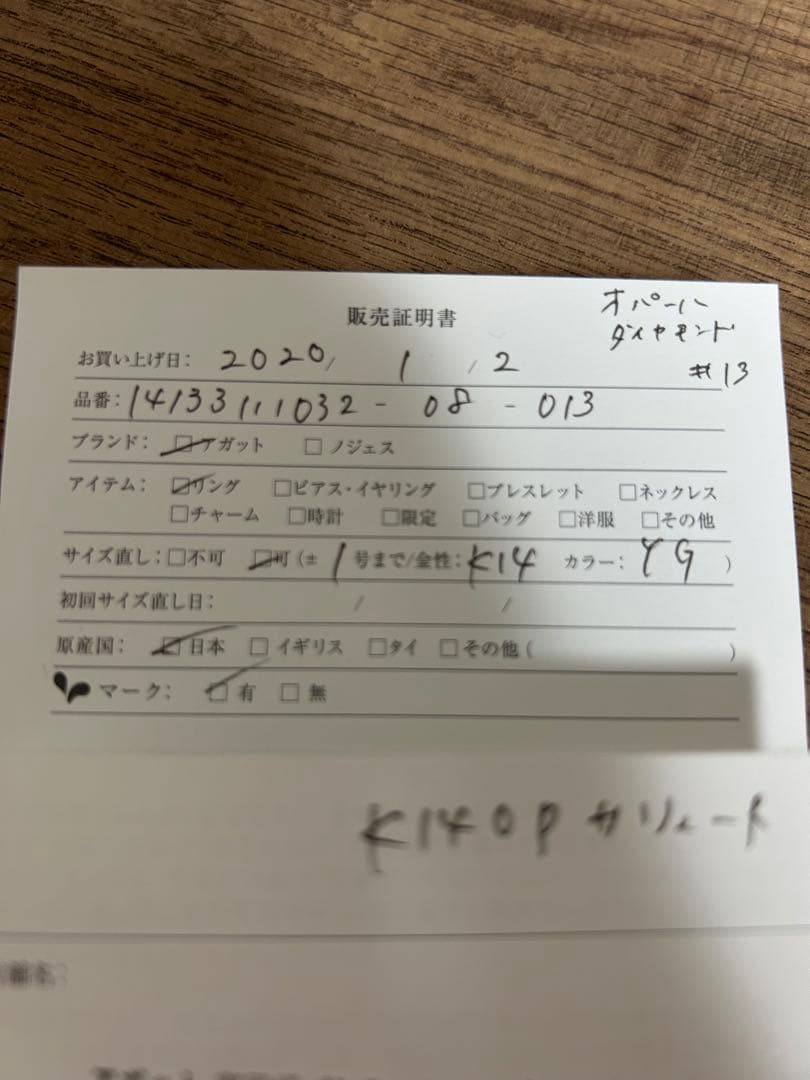 販売証明書
オパール
ダイヤモンド
#13
お買い上げ日: 2020/ 1 / 2
品番: 14133111032 - 08 - 013
ブランド: ☑アガット □ノジェス
アイテム: ☑リング □ピアス・イヤリング □ブレスレット □ネックレス
□チャーム □時計 □限定 □バッグ □洋服 □その他
サイズ直し: □不可 ☑可 (± 1 号まで/金性: K14 カラー: YG )
初回サイズ直し日: / /
原産国: ☑日本 □イギリス □タイ □その他 ( )
マーク: ☑有 □無
K14OP